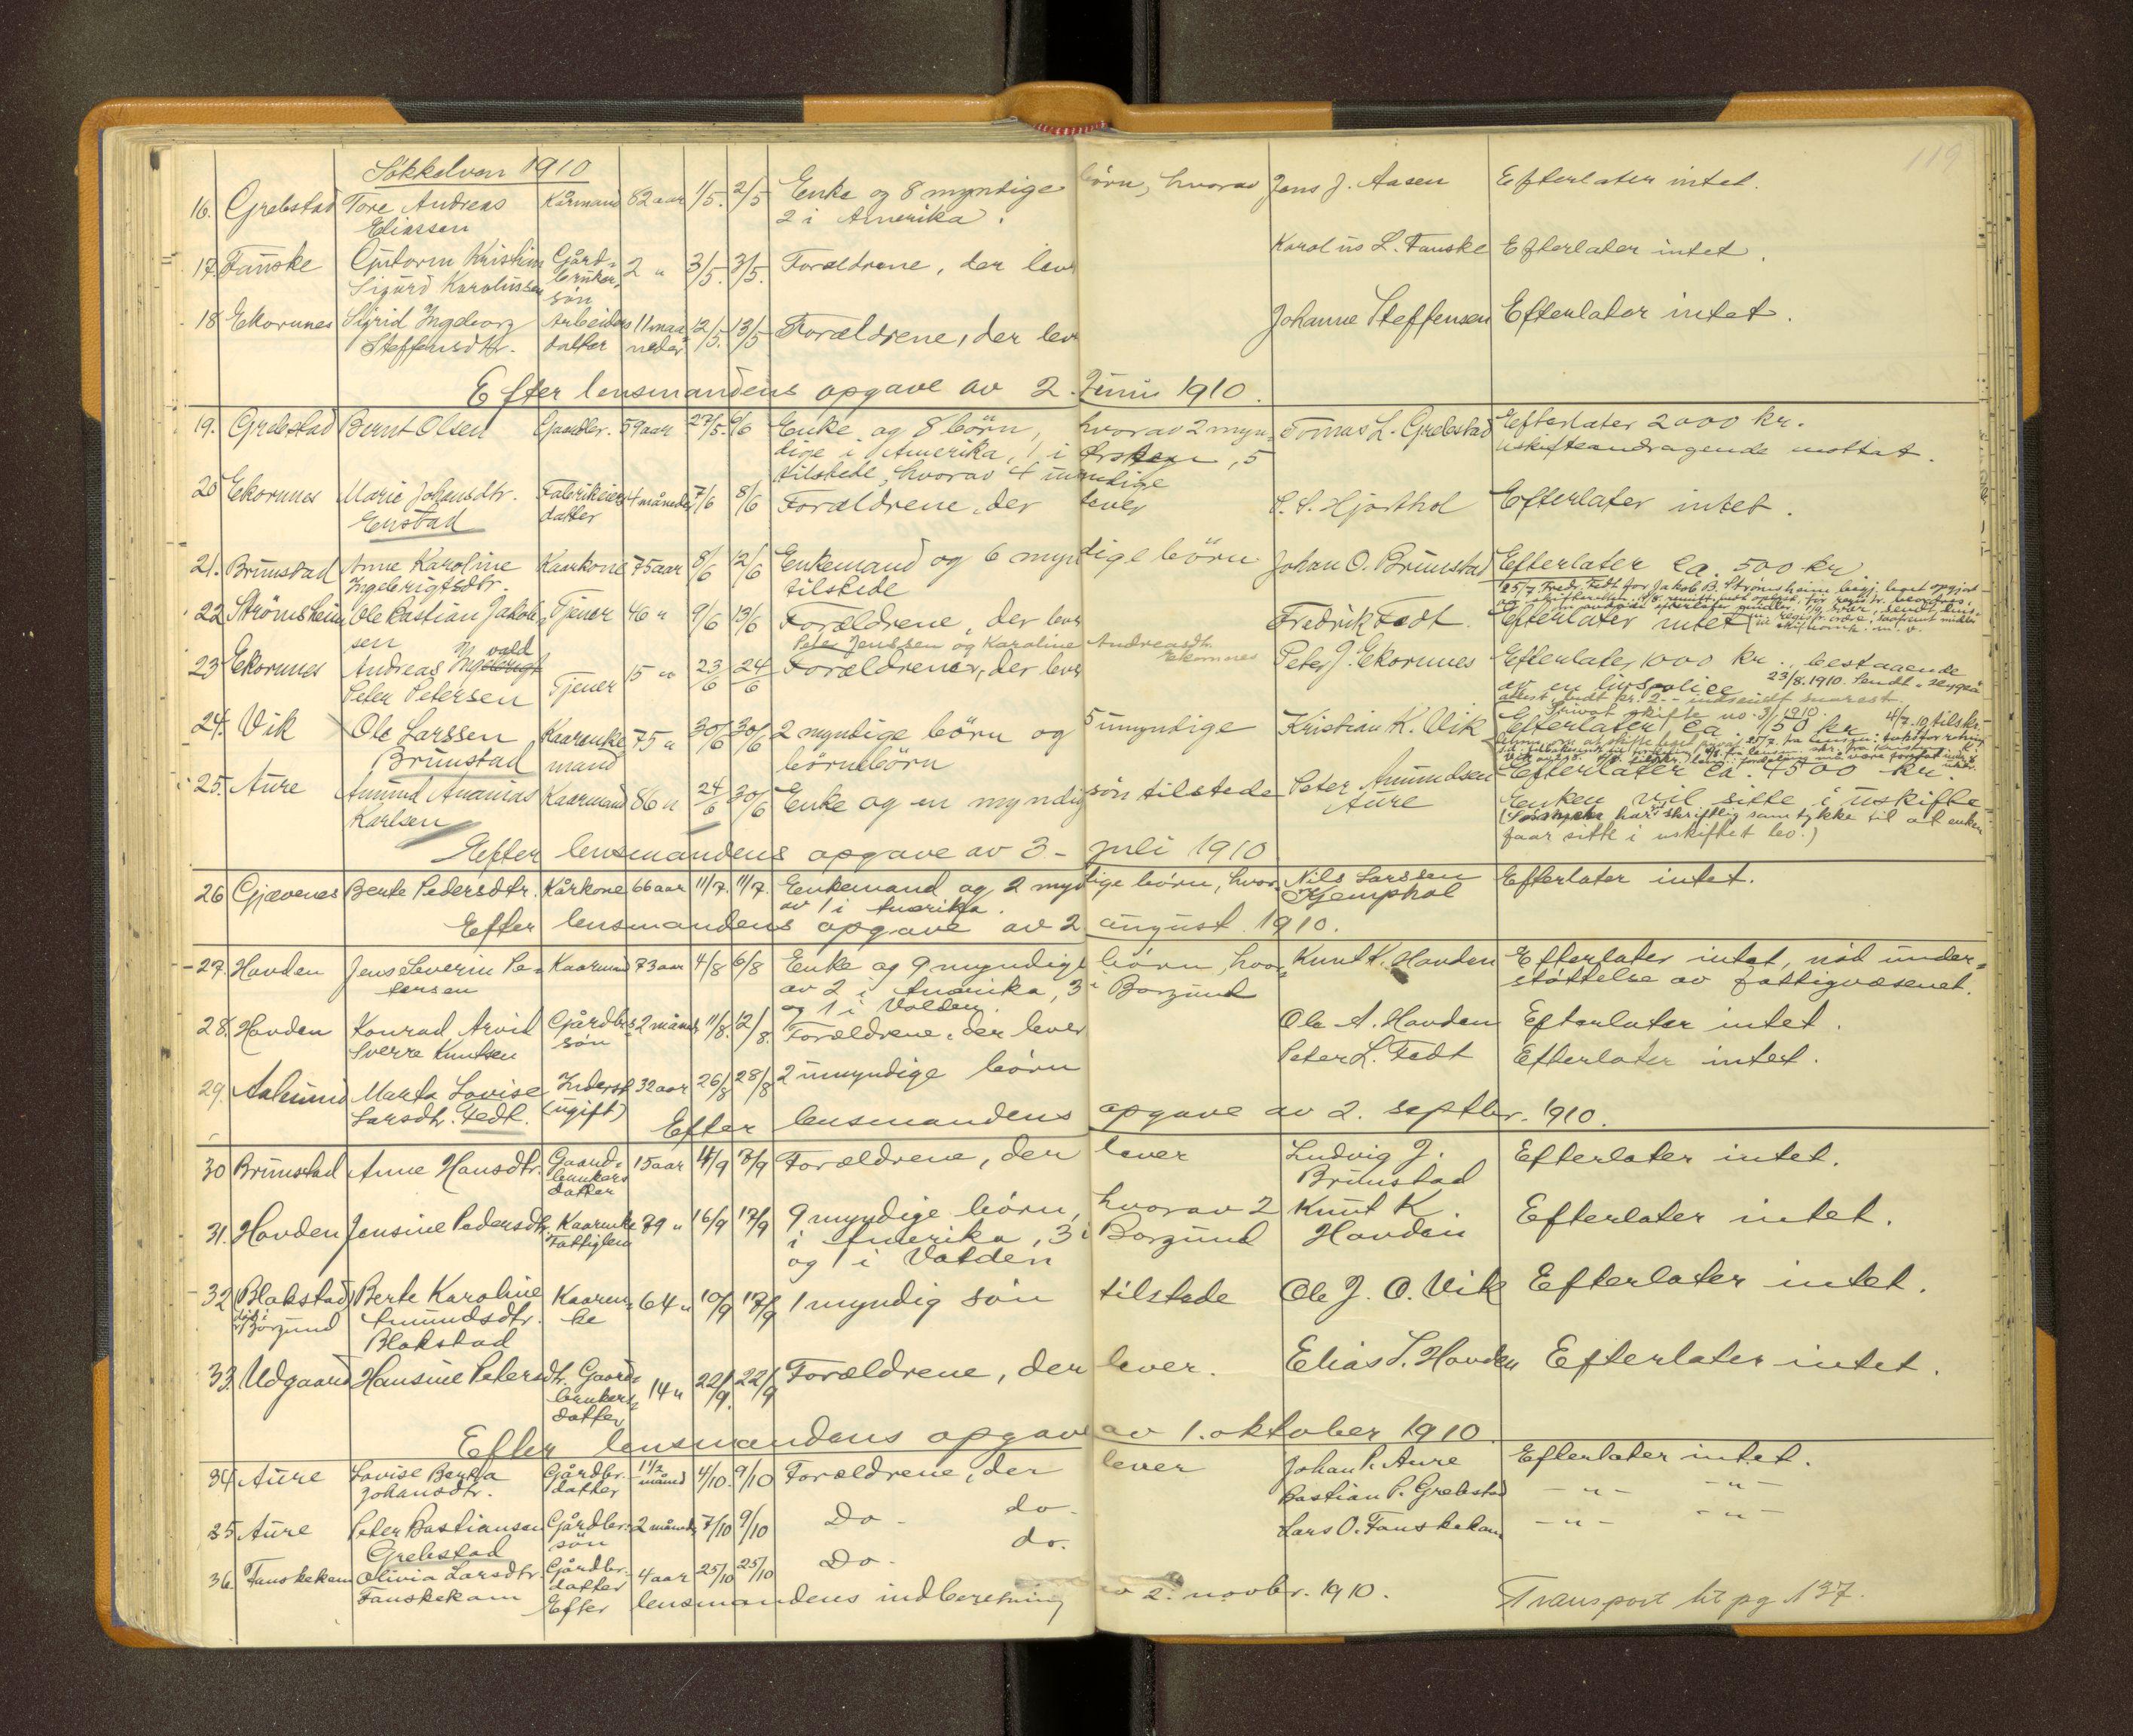 119
Søkkelven 1910
16. Grebstad Tore Andreas Kårmand 82 aar 1/5. 2/5 Enke og 8 myndige børn, hvorav Jens J. Aasen Efterlater intet.
Eliassen 2 i Amerika.
17. Fauske Guttorm Kristian Gård= 2 " 3/5. 3/5. Forældrene, der lever Karolus L. Fauske Efterlater intet.
Sigurd Karolussen bruker
søn
18 Ekornnes Sigrid Ingeborg Arbeiders 11 maa 12/5. 13/5 Forældrene, der lever Johanne Steffensen Efterlater intet.
Steffensdtr. datter neder
Efter lensmandens opgave av 2. Juni 1910.
19. Grebstad Bernt Olsen Gaardbr. 59 aar 27/5. 6/6 Enke og 8 børn, hvorav 2 myn= Tomas L. Grebstad Efterlater 2000 kr.
dige i Amerika, 1 i Ørsten, 5 Uskifteandragende mottat.
tilstede, hvorav 4 umyndige
20 Ekornnes Marie Johansdtr. Fabrikeiers 4 måneder 7/6 8/6 Forældrene, der lever S. S. Hjorthol Efterlater intet.
Enstad datter
21. Brunstad Anne Karoline Kaarkone 75 aar 8/6 12/6 Enkemand og 6 myndige børn Johan O. Brunstad Efterlater ca. 500 kr
Ingebrigtsdtr. tilstede
22 Strømsheim Ole Bastian Jakob= Tjener 46 " 9/6 13/6 Forældrene, der lever Fredrik Fedt. Efterlater intet
sen
Peter Jenssen og Karoline Andreasdtr. Ekornnes
23 Ekornnes Andreas Ingvald Tjener 15 " 23/6 24/6 Forældrene, der lever Peter J. Ekornnes Efterlater 1000 kr., bestaaende
Peter Petersen av en livspolice 23/8. 1910. Sendt
Privat skifte no. 3/1910.
24. Vik Ole Larssen Kaarenke 75 " 30/6 30/6 2 myndige børn og 5 umyndige Kristian K. Vik Efterlater ca. 150 kr
Brunstad mand børnebørn
25. Aure Amund Ananias Kaarmand 86 " 24/6 30/6 Enke og en myndig søn tilstede Peter Amundsen Efterlater ca. 4500 kr.
Karlsen Aure Enken vil sitte i uskifte
har skriftlig samtykke til at enken
faar sitte i uskiftet bo.)
Efter lensmandens opgave av 3- juli 1910
26 Gjævenes Berte Pedersdtr. Kårkone 66 aar 11/7. 11/7. Enkemand og 2 myndige børn, hvor= Nils Larssen Efterlater intet.
av 1 i Amerika. Hjemphol
Efter lensmandens opgave av 2 august 1910.
27. Hovden Jens Severin Pe= Kaarmand 73 aar 4/8 6/8 Enke og 9 myndige børn, hvor= Knut K. Hovden Efterlater intet, nød under=
tersen av 2 i Amerika, 3 i Borgund støttelse av fattigvæsenet.
og 1 i Volden.
28. Hovden Konrad Arvid Gårdbrs 2 måneder 11/8. 12/8. Forældrene, der lever Ole A. Hovden Efterlater intet.
Sverre Knutsen søn
29. Aalesund Marta Lovise Inderst 32 aar 26/8 28/8 2 umyndige børn Peter L. Fedt Efterlater intet.
Larsdtr. Fedt. (ugift)
Efter lensmandens opgave av 2. septbr. 1910.
30 Brunstad Anne Hansdtr. Gaard= 15 aar 4/9 7/9 Forældrene, der lever Ludvig J. Efterlater intet.
brukers Brunstad
datter
31. Hovden Jensine Pedersdtr. Kaarenke 79 " 16/9 17/9 9 myndige børn, hvorav 2 Knut K. Efterlater intet.
Fattiglem i Amerika, 3 i Borgund Hovden
og 1 i Valden
32 Blakstad Berte Karoline Kaaren= 64 " 10/9 17/9 1 myndig søn tilstede Ole J. O. Vik Efterlater intet.
død i Borgund Amundsdtr. ke
Blakstad
33. Udgaard Hansine Petersdtr. Gaard= 14 " 22/9. 22/9 Forældrene, der lever. Elias S. Hovden Efterlater intet.
brukers
datter
Efter lensmandens opgave av 1. oktober 1910
34 Aure Lovise Berta Gårdbr. 1 1/2 månd 4/10. 9/10 Forældrene, der lever Johan P. Aure Efterlater intet.
Johansdtr. datter
35 Aure Peter Bastiansen Gårdbr. 2 måneder 7/10 9/10 Do - do - Bastian P. Grebstad - " - - " -
Grebstad søn
36. Fauskekam Olivia Larsdtr. Gårdbr. 4 aar 25/10 25/10 Do - do. Lars O. Fauskekam - " - - " -
Fauskekam datter
Efter lensmandens indberetning av 2. novbr. 1910.
Transport til pg 137.